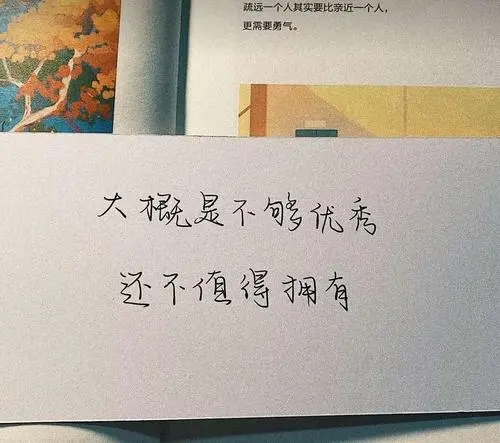 疏远一个人其实要比亲近一个人，
更需要勇气。
大概是不够优秀
还不值得拥有